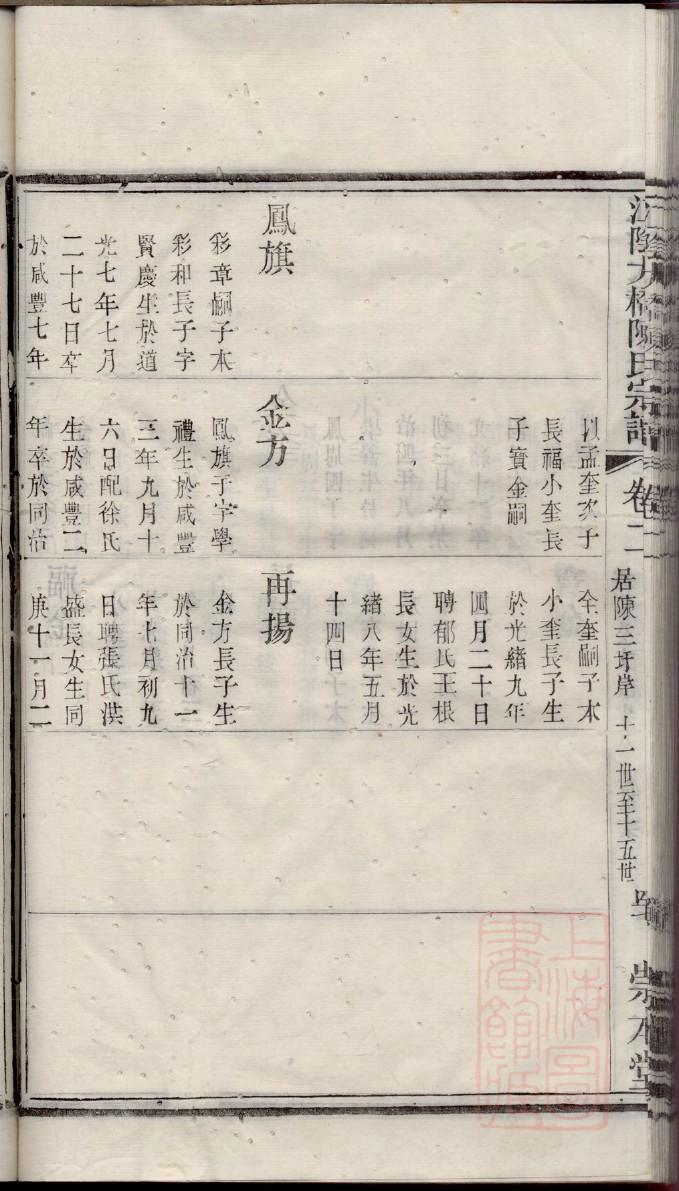 江陰方橋陳氏宗譜
卷二
居陳三圩岸
十一世至十五世
崇本堂
鳳旗
彩章嗣子本
彩和長子字
賢慶生於道
光七年七月
二十七日卒
於咸豐七年
以孟奎次子
長福小奎長
子寶金嗣
金方
鳳旗子字學
禮生於咸豐
三年九月十
六日配徐氏
生於咸豐二
年卒於同治
全奎嗣子本
小奎長子生
於光緒九年
四月二十日
聘郁氏王根
長女生於光
緒八年五月
十四日
再揚
金方長子生
於同治十一
年七月初九
日聘張氏洪
盛長女生同
庚十一月二
上海圖書館